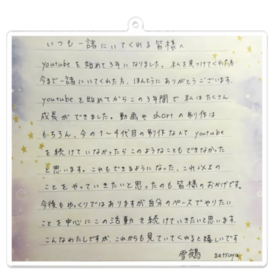 いつも一緒にいてくれる皆様へ
youtubeを始めて3年になりました。私を見つけてくれた方
今まで一緒にいてくれた方、ほんとうにありがとうございます。
youtubeを始めてからこの3年間で私はたくさん
成長ができました。動画やshortの制作は
もちろん、今の1〜千代目の制作なんてyoutube
を続けていなかったらこのようなこともできなかった
と思います。これもできるようになった、これ以上の
ことをやっていきたいと思ったのも皆様のおかげです。
今後もゆっくりではありますが自分のペースでやりたい
ことを中心にこの活動を続けていきたいと思います。
こんなわたしですが、これからも見ていてくれると嬉しいです
雪鶴